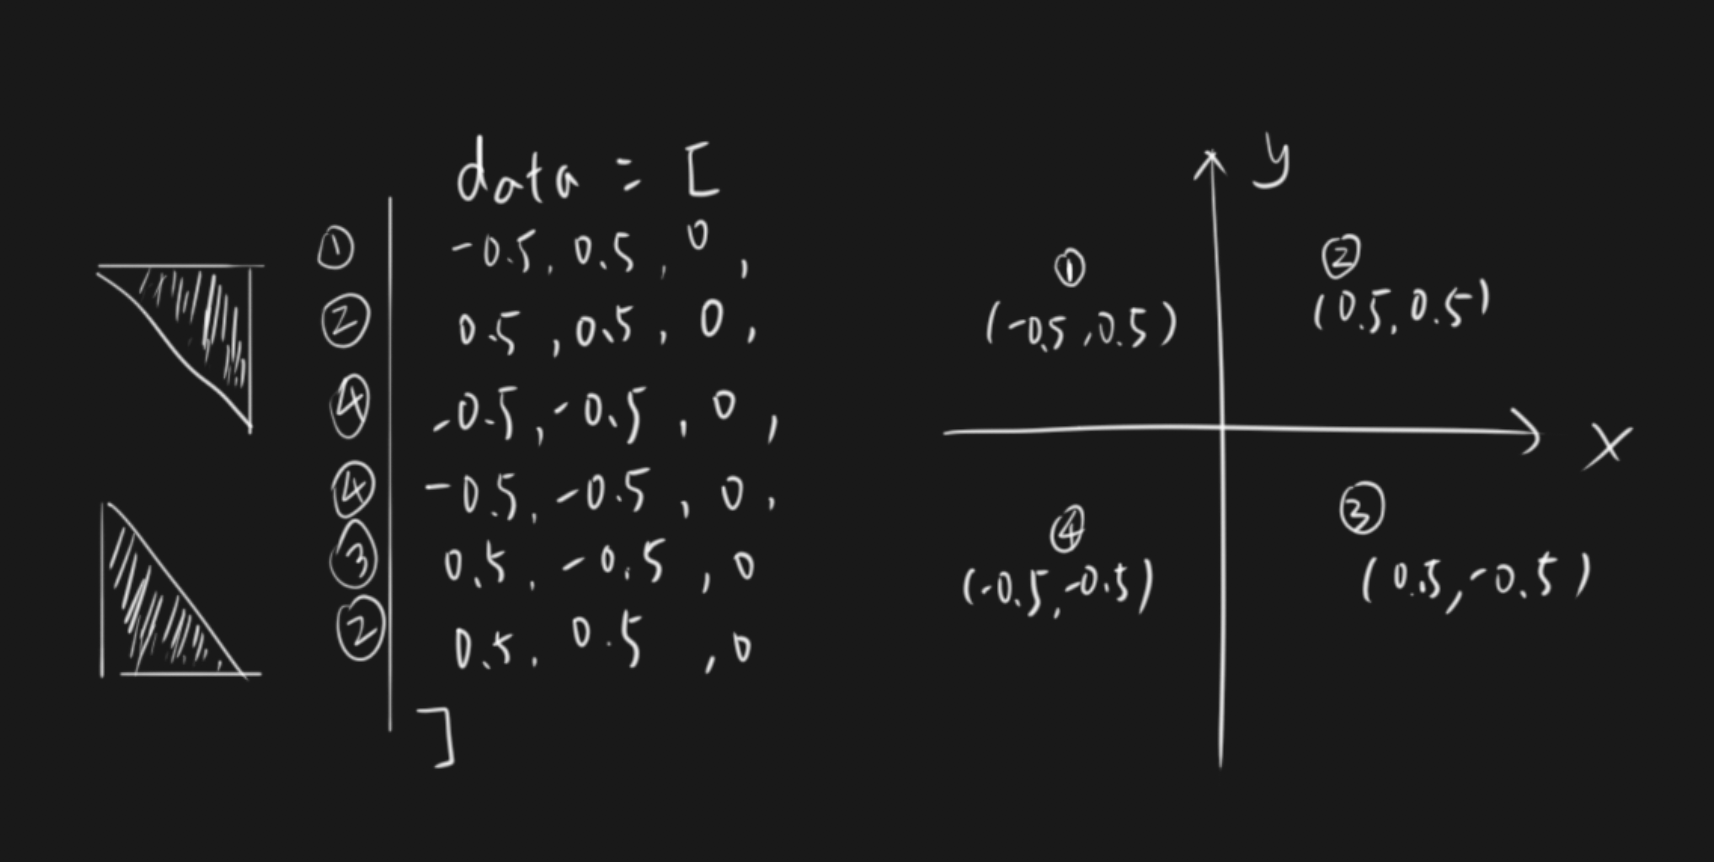 data = [
① -0.5, 0.5, 0,
② 0.5, 0.5, 0,
④ -0.5, -0.5, 0,
④ -0.5, -0.5, 0,
③ 0.5, -0.5, 0
② 0.5, 0.5, 0
]
y
①
(-0.5, 0.5)
②
(0.5, 0.5)
x
④
(-0.5, -0.5)
③
(0.5, -0.5)